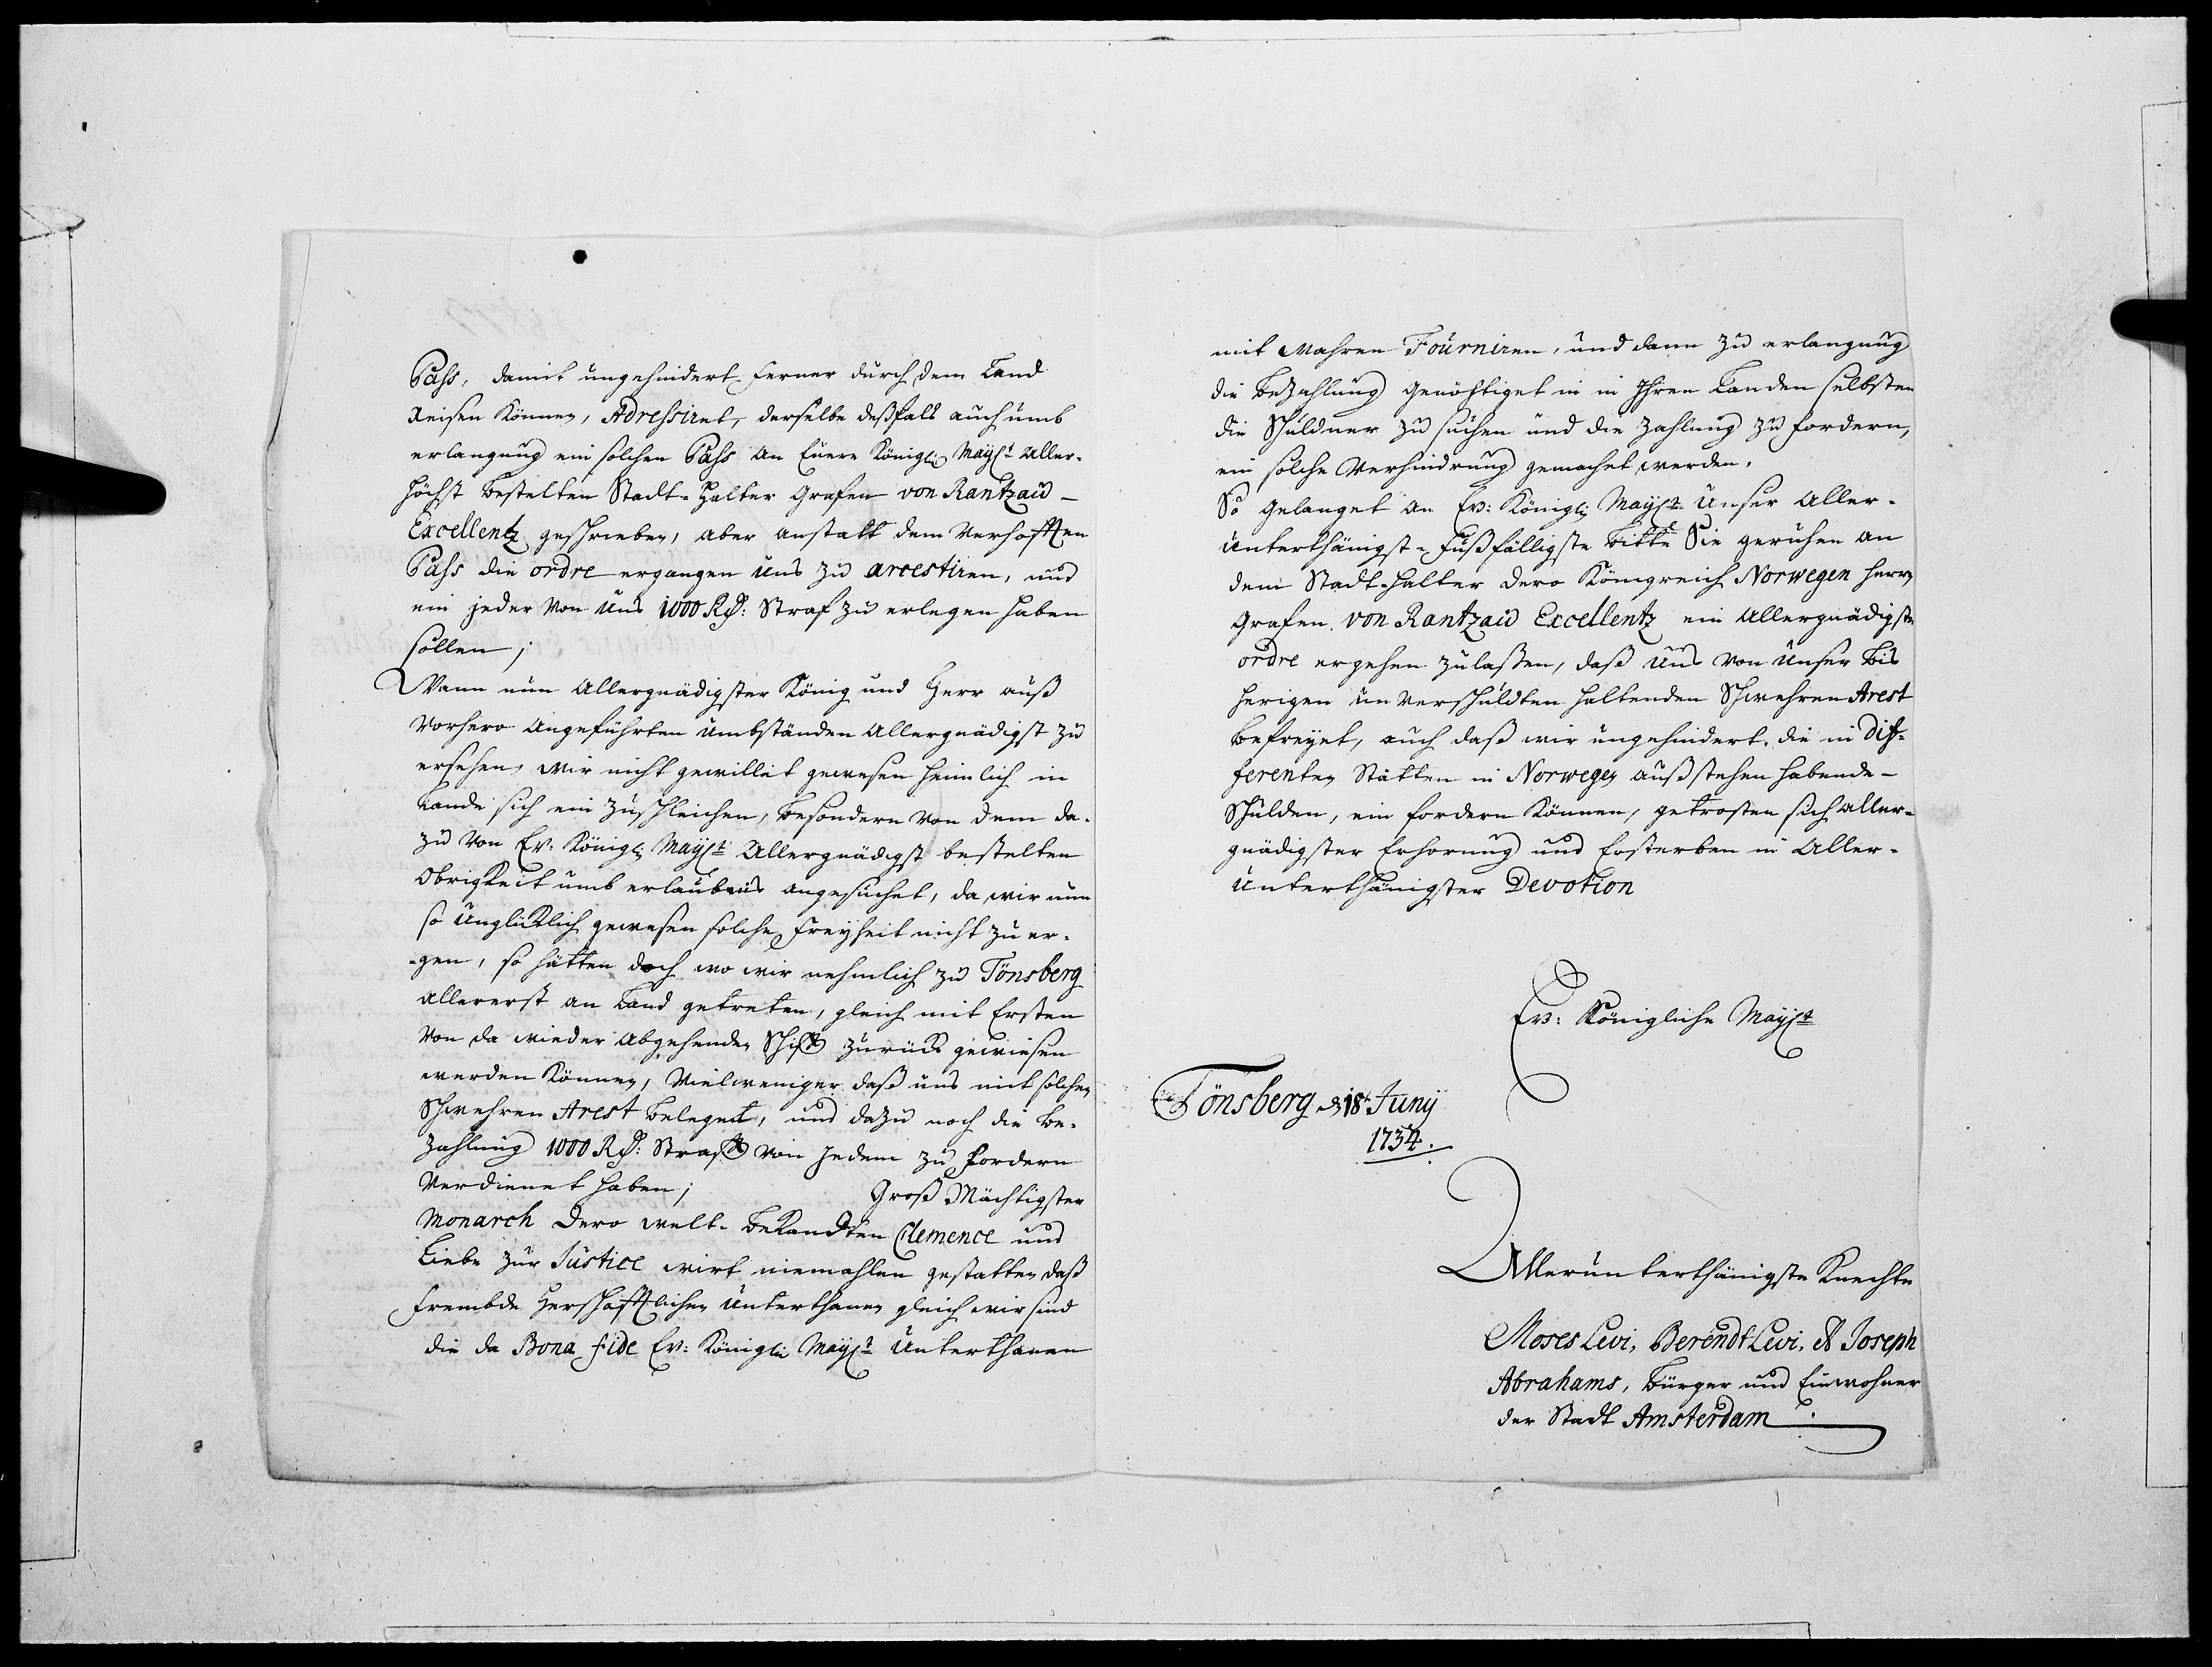 Pass, damit ungehindert ferner durch dem Land
Reisen können, Adressiret, derselbe deßfals auch umb
erlangung ein solchen Pass an Euere Königln Mayst Aller-
höchst bestelten Stadt-Halter Grafen von Rantzau -
Excellentz geschrieben, aber anstatt dem Verhofften
Pass die ordre ergangen uns zu arrestiren, und
ein jeder von uns 1000 Rd: Straf zu erlegen haben
sollen;
Wann nun Allergnädigster König und Herr auß
Vorhero Angeführten Umbständen Allergnädigst zu
ersehen, wir nicht gewillet gewesen heimlich in
Lande sich ein zuschleichen, besondern von dem da-
zu von Ew: Königl: Mayst Allergnädigst bestelten
Obrigkeit umb erlaubnis angesuchet, da wir nun
so unglücklich gewesen solche Freyheit nicht zu er-
-gen, so hätten doch wo wir nehmlich zu Tönsberg
allererst an Land getreten, gleich mit Ersten
von da wieder Abgehenden Schiff zurück gewiesen
werden können, Vielweniger daß uns mit solchen
Schwehren Arest beleget, und dazu noch die Be-
zahlung 1000 Rd: Straff von Jedem zu fordern
Verdienet haben; Groß Mächtigster
Monarch Dero welt-bekandten Clemence und
Liebe zur Justice wirt niemahlen gestatten daß
frembde Herschafftlichen Unterthanen gleich wir sind
die da Bona fide Ew: Königln Mayst Unterthanen
mit Wahren Fourniren, und dann zu erlangung
die Bezahlung genöhtiget in in Ihren Landen selbsten
die Schuldner zu suchen und die Zahlung zu fordern,
ein solche Verhindrung gemachet werden.
So gelanget an Ew: Königl: Mayst Unser Aller-
unterthänigst-Fußfälligste bitte Sie geruhen an
dem Stadt-halter dero Königreich Norwegen Herrn
Grafen von Rantzau Excellentz ein Allergnädigste
ordre ergehen zulaßen, daß uns von unser bis
herigen un verschuldten haltenden Schwehren Arest
befreyet, auch daß wir ungehindert die in Dif-
ferenten Stätten in Norwegen außstehen habende -
Schulden, ein fordern können, getrosten sich aller-
gnädigster Erhorung und Ersterben in Aller-
unterthänigster Devotion
Ew: Königliche Mayst
Tönsberg d 18t Juny
1734.
Allerunterthänigste Knechte
Moses Levi, Berendt Levi, & Joseph
Abrahams, Bürger und Einwohner
der Stadt Amsterdam